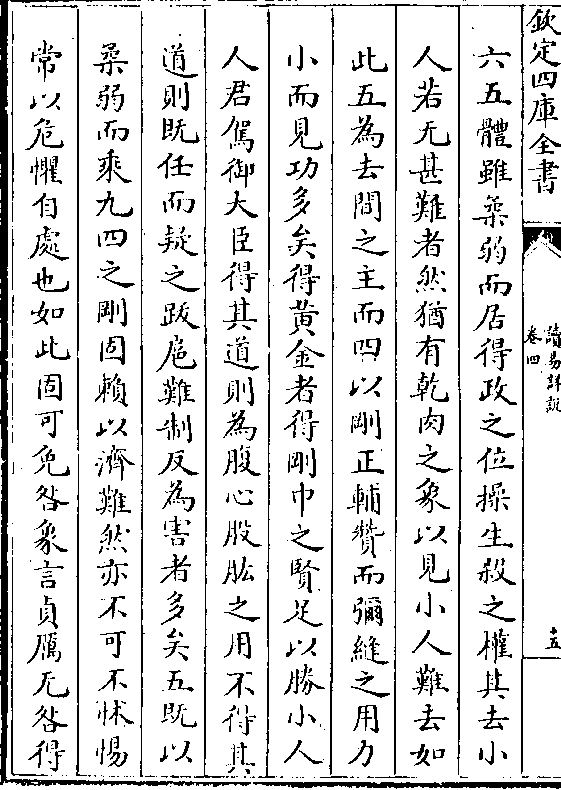 欽定四庫全書
讀易詳說
卷四
十五
六五體雖柔弱而居得政之位操生殺之權其去小
人若无甚難者然猶有乾肉之象以見小人難去如
此五為去間之主而四以剛正輔贊而彌縫之用力
小而見功多矣得黃金者得剛中之賢足以勝小人
人君駕御大臣得其道則為腹心股肱之用不得其
道則既任而疑之跋扈難制反為害者多矣五既以
柔弱而乘九四之剛固賴以濟難然亦不可不怵惕
常以危懼自處也如此固可免咎象言貞厲无咎得